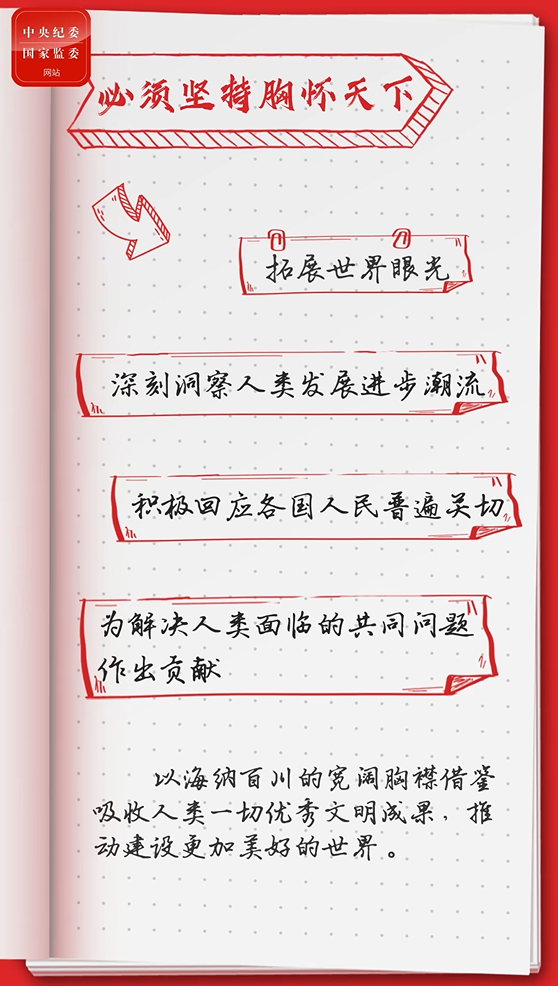 中央纪委
国家监委
网站
必须坚持胸怀天下
拓展世界眼光
深刻洞察人类发展进步潮流
积极回应各国人民普遍关切
为解决人类面临的共同问题
作出贡献
以海纳百川的宽阔胸襟借鉴
吸收人类一切优秀文明成果，推
动建设更加美好的世界。